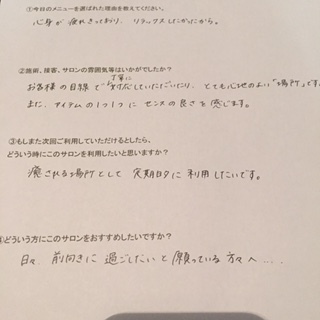 ①今日のメニューを選ばれた理由を教えてください。
心身が疲れきっており、リラックスしたかったから。
②施術、接客、サロンの雰囲気等はいかがでしたか?
丁寧に
お客様の目線で していただいたり、とても心地のよい「場所」です。
また、アイテムの1つ1つにセンスの良さを感じます。
③もしまた次回ご利用していただけるとしたら、
どういう時にこのサロンを利用したいと思いますか?
癒される場所として定期的に利用したいです。
④どういう方にこのサロンをおすすめしたいですか?
日々、前向きに過ごしたいと願っている方々へ....